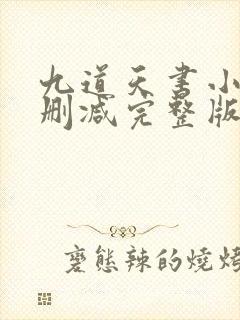 九道天书小
删减完整版
变態辣的燒烤